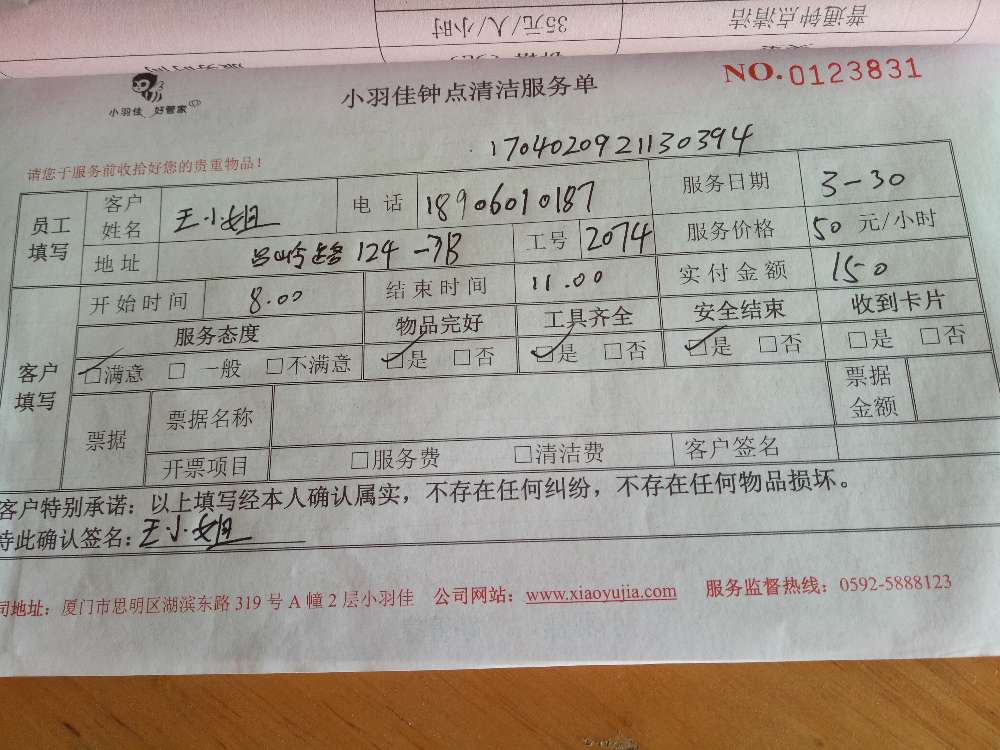 普通钟点清洁
35元/人/小时
小羽佳 好管家
小羽佳钟点清洁服务单
NO.0123831
1704020921130394
请您于服务前收拾好您的贵重物品!
员工填写 客户姓名 王小姐 电话 18906010187 服务日期 3-30
地址 吕岭路124-7B 工号 2074 服务价格 50 元/小时
客户填写 开始时间 8.00 结束时间 11.00 实付金额 150
服务态度 物品完好 工具齐全 安全结束 收到卡片
☑满意 □一般 □不满意 ☑是 □否 ☑是 □否 ☑是 □否 □是 □否
票据 票据名称 票据金额
开票项目 □服务费 □清洁费 客户签名
客户特别承诺:以上填写经本人确认属实,不存在任何纠纷,不存在任何物品损坏。
特此确认签名:王小姐
司地址:厦门市思明区湖滨东路319号A幢2层小羽佳 公司网站:www.xiaoyujia.com 服务监督热线:0592-5888123